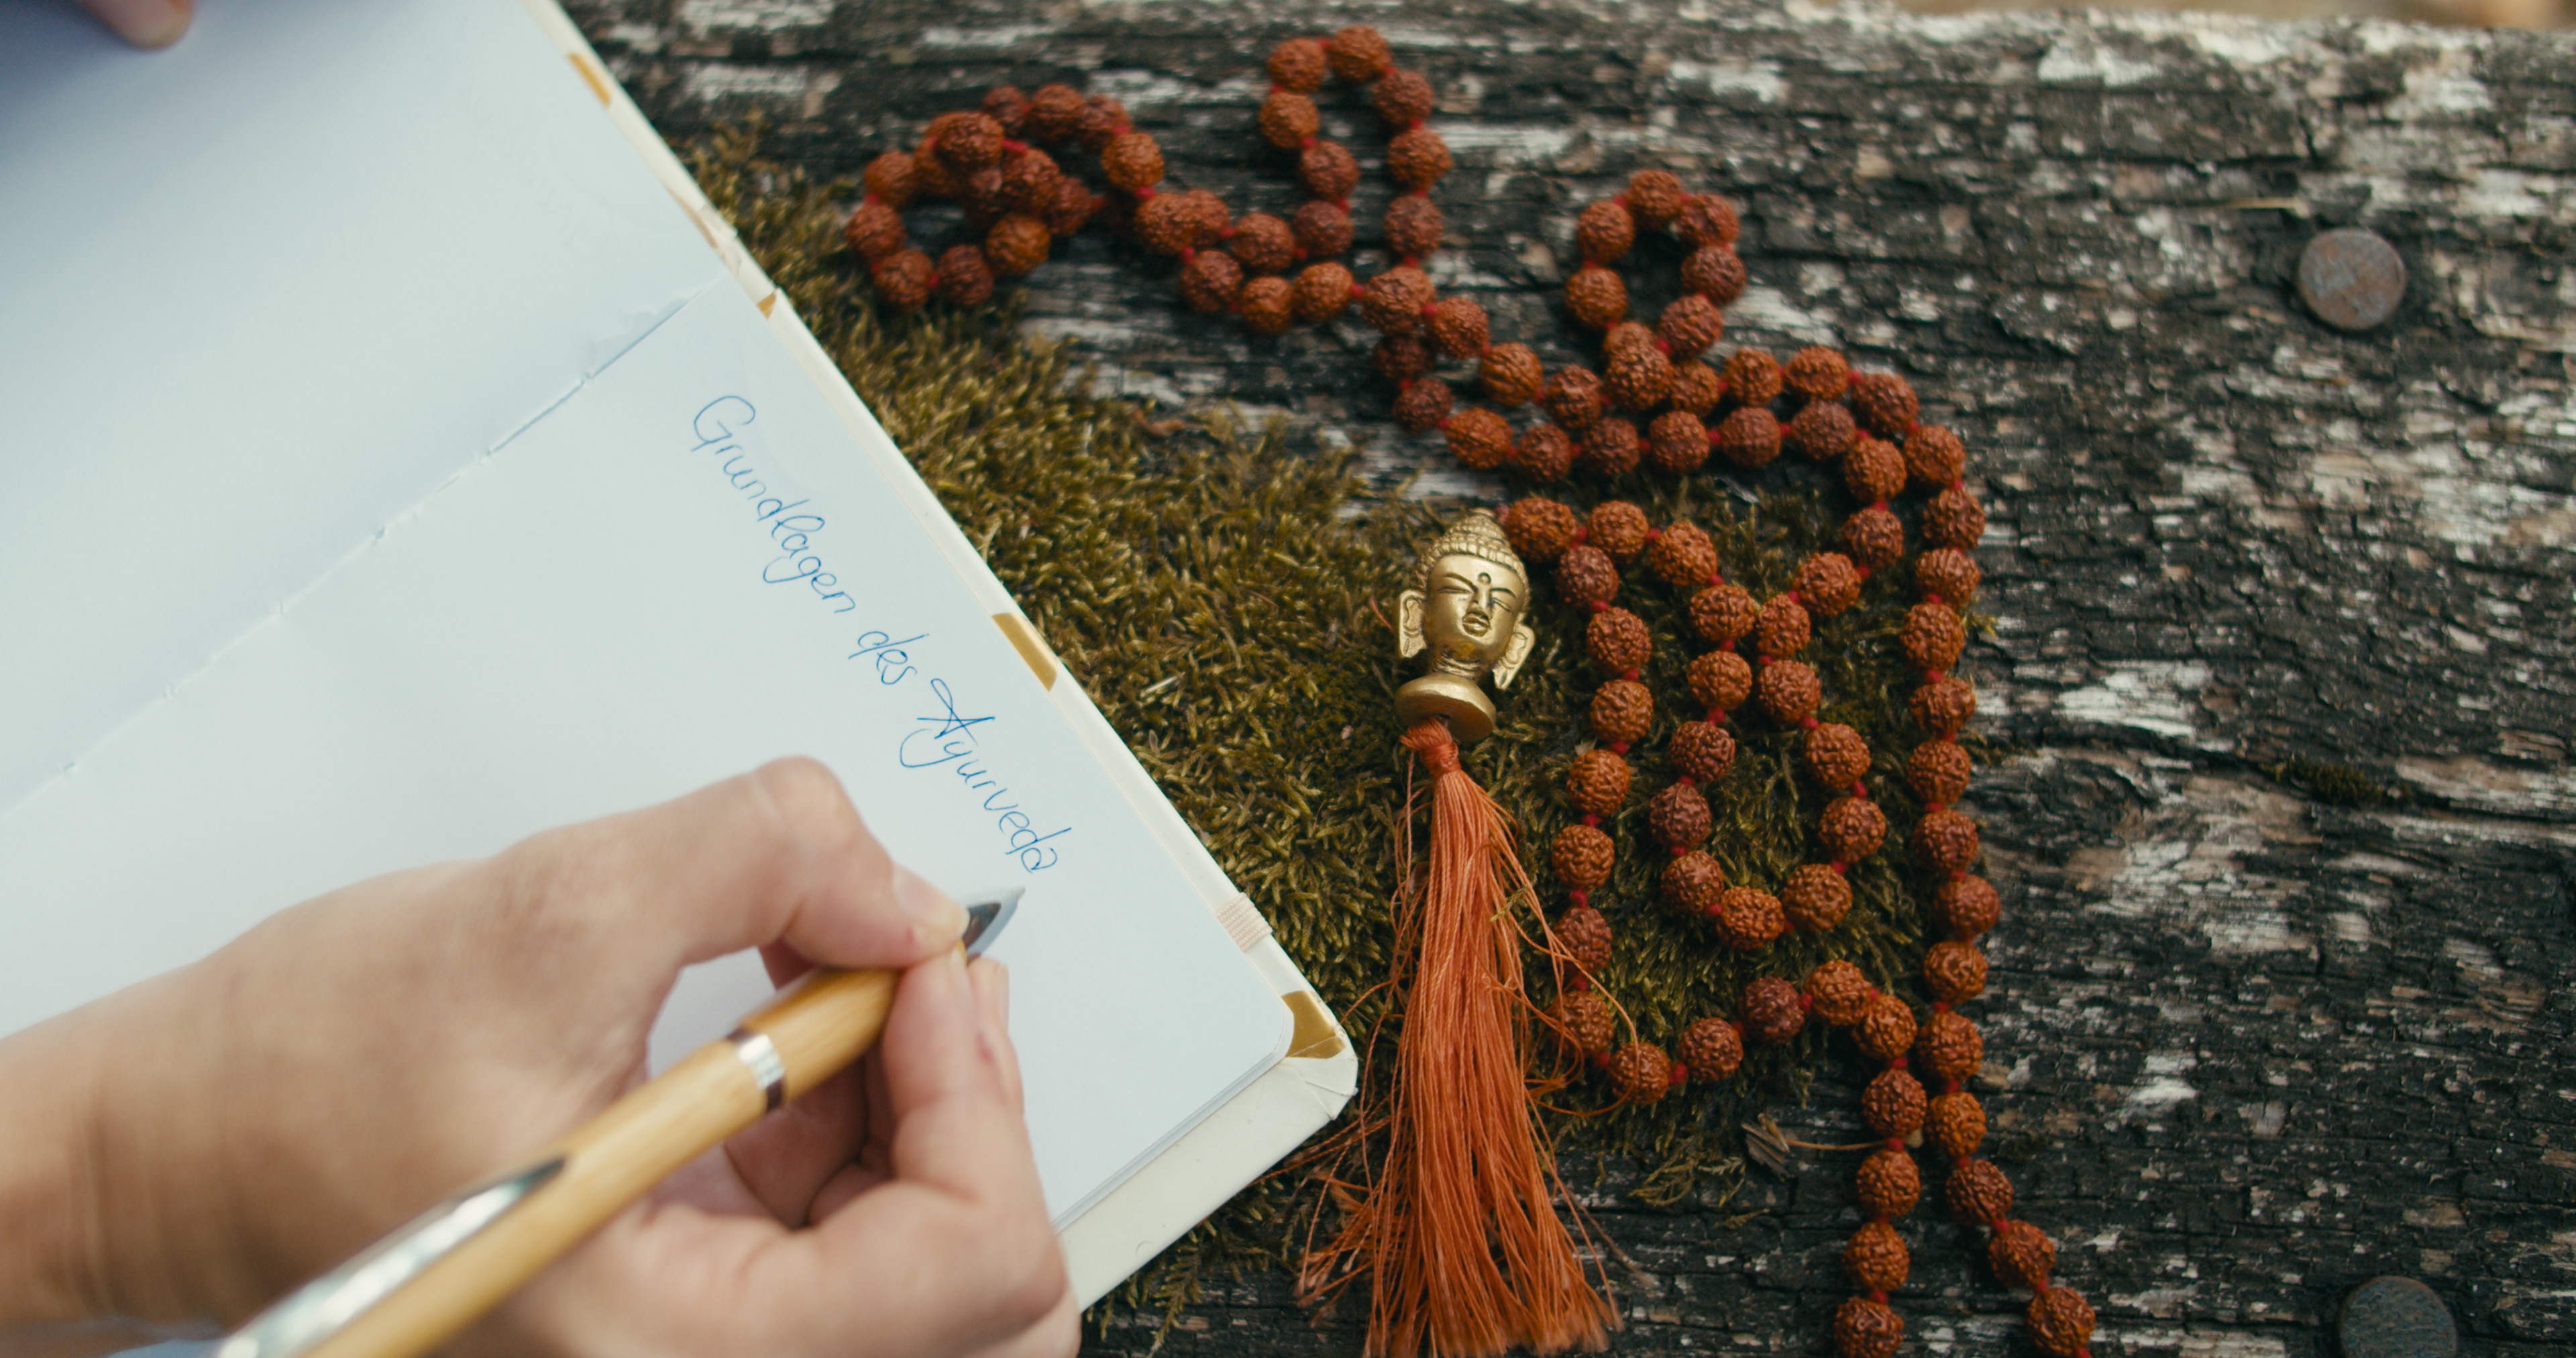 Grundlagen des Ayurveda